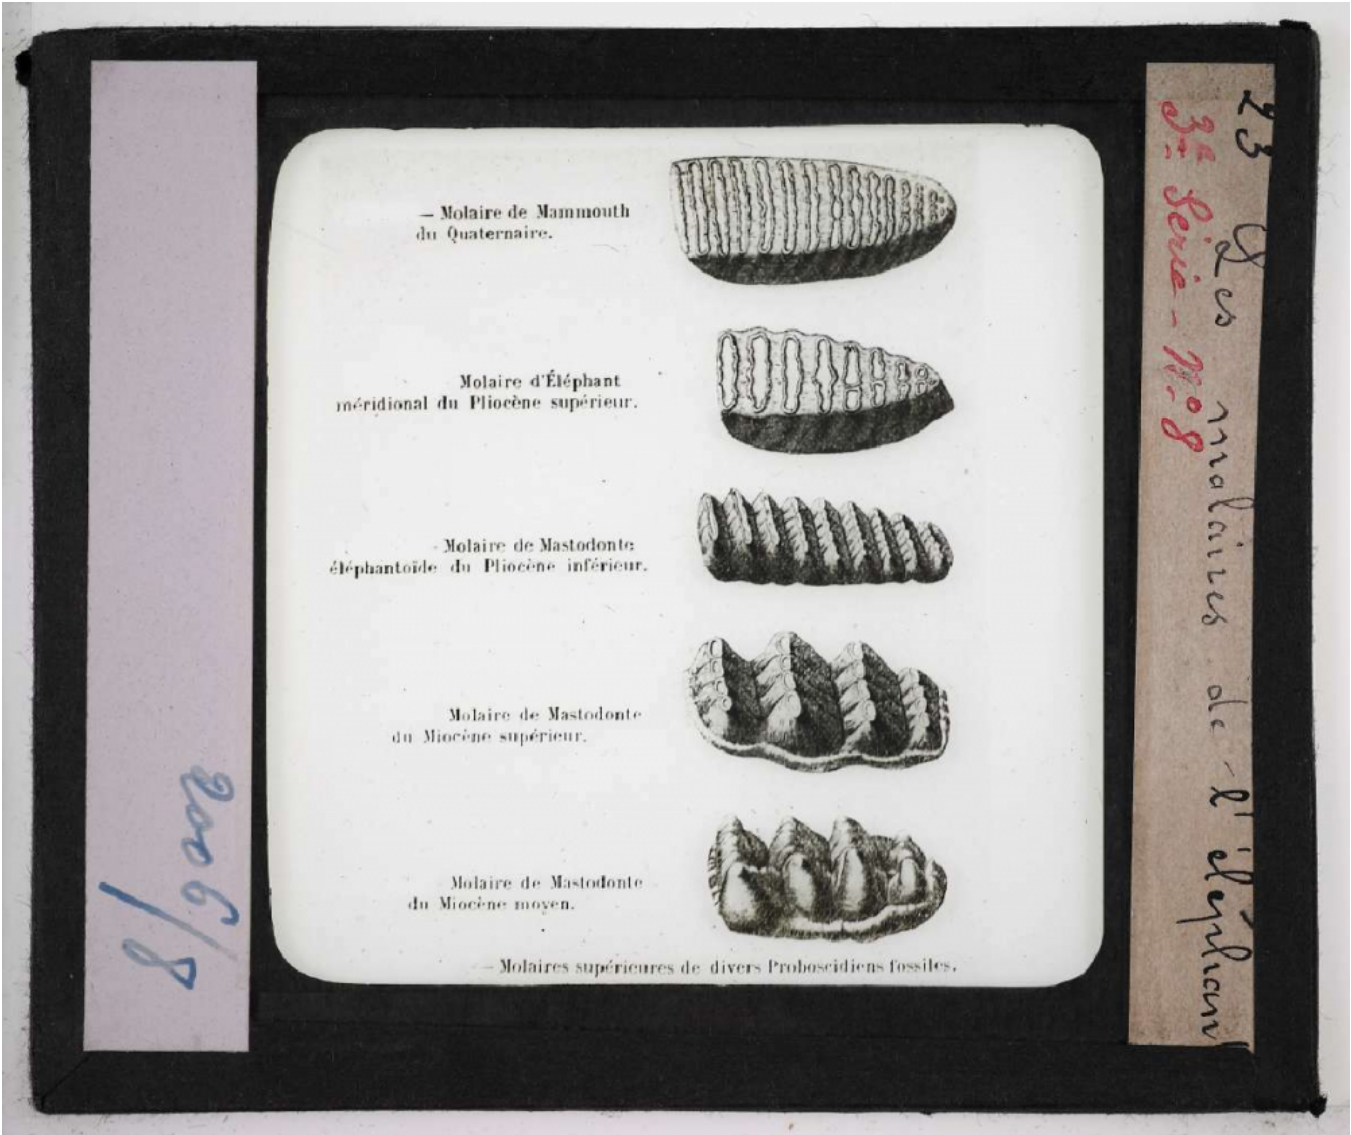 — Molaire de Mammouth
du Quaternaire.
Molaire d'Éléphant
méridional du Pliocène supérieur.
- Molaire de Mastodonte
éléphantoïde du Pliocène inférieur.
Molaire de Mastodonte
du Miocène supérieur.
Molaire de Mastodonte
du Miocène moyen.
— Molaires supérieures de divers Proboscidiens fossiles.
2006/8
23 Les molaires de l'éléphant
3e Série - No 8